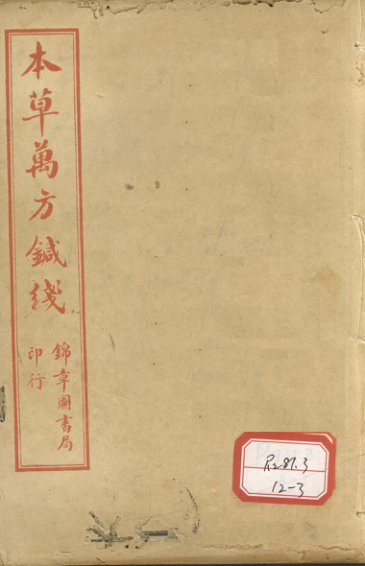 本草萬方鍼綫
錦章圖書局
印行
R281.3
12-3